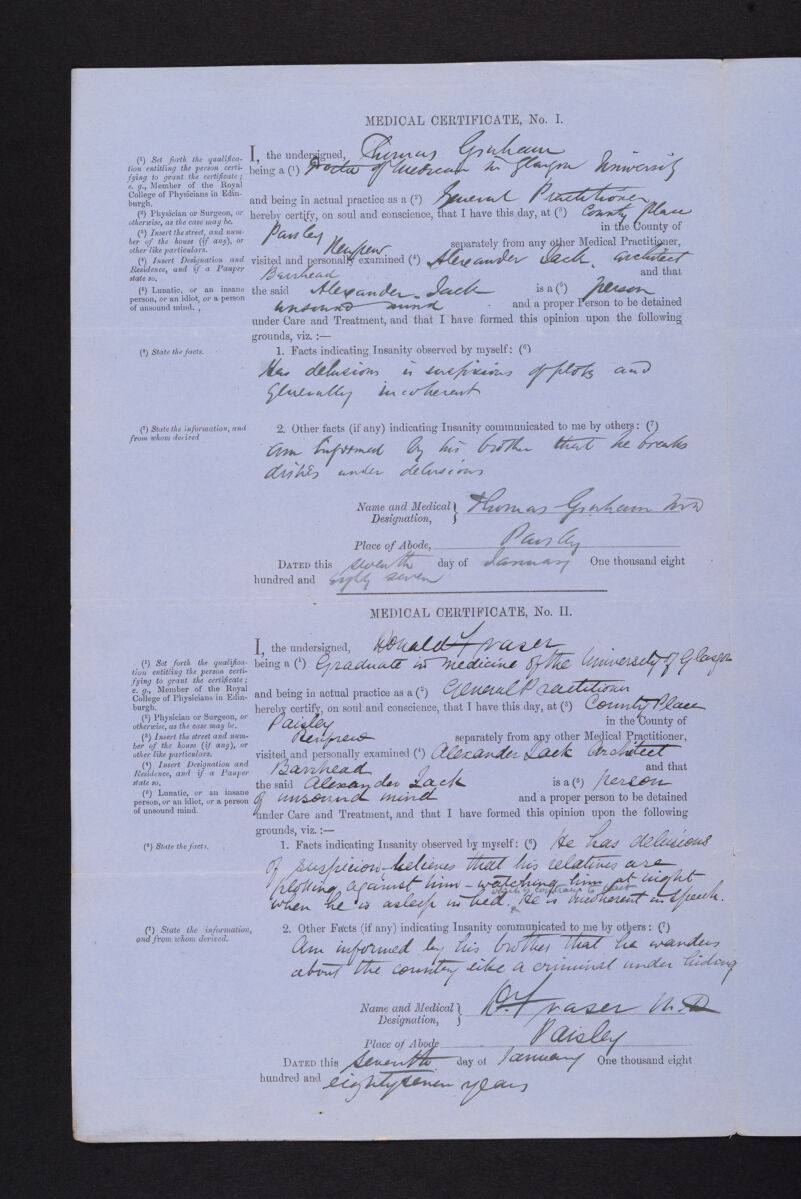 MEDICAL CERTIFICATE, No. I.
(¹) Set forth the qualifica-
tion entitling the person certi-
fying to grant the certificate;
e. g., Member of the Royal
College of Physicians in Edin-
burgh.
(²) Physician or Surgeon, or
otherwise, as the case may be.
(³) Insert the street, and num-
ber of the house (if any), or
other like particulars.
(⁴) Insert Designation and
Residence, and if a Pauper
state so.
(⁵) Lunatic, or an insane
person, or an idiot, or a person
of unsound mind.
I, the undersigned, Thomas Graham
being a (¹) Doctor of Medicine in Glasgow University
and being in actual practice as a (²) General Practitioner
hereby certify, on soul and conscience, that I have this day, at (³) County Place
Paisley in the County of
Renfrew separately from any other Medical Practitioner,
visited and personally examined (⁴) Alexander Jack, architect
Barrhead and that
the said Alexander Jack is a (⁵) person
unsound mind and a proper Person to be detained
under Care and Treatment, and that I have formed this opinion upon the following
grounds, viz. :—
(⁶) State the facts.
1. Facts indicating Insanity observed by myself: (⁶)
Has delusions is suspicious of plots and
generally incoherent
(⁷) State the information, and
from whom derived
2. Other facts (if any) indicating Insanity communicated to me by others: (⁷)
Am informed by his brother that he breaks
dishes under delusions
Name and Medical Designation, Thomas Graham MD
Place of Abode, Paisley
DATED this seventh day of January One thousand eight
hundred and eighty seven
MEDICAL CERTIFICATE, No. II.
(¹) Set forth the qualifica-
tion entitling the person certi-
fying to grant the certificate;
e. g., Member of the Royal
College of Physicians in Edin-
burgh.
(²) Physician or Surgeon, or
otherwise, as the case may be.
(³) Insert the street and num-
ber of the house (if any), or
other like particulars.
(⁴) Insert Designation and
Residence, and if a Pauper
state so.
(⁵) Lunatic, or an insane
person, or an idiot, or a person
of unsound mind.
I, the undersigned, Donald Fraser
being a (¹) Graduate in medicine of the University of Glasgow
and being in actual practice as a (²) General Practitioner
hereby certify, on soul and conscience, that I have this day, at (³) County Place
Paisley in the County of
Renfrew separately from any other Medical Practitioner,
visited and personally examined (⁴) Alexander Jack Architect
Barrhead and that
the said Alexander Jack is a (⁵) person
of unsound mind and a proper person to be detained
under Care and Treatment, and that I have formed this opinion upon the following
grounds, viz. :—
(⁶) State the facts.
1. Facts indicating Insanity observed by myself: (⁶) He has delusions
of suspicion - believes that his relatives are
plotting against him - watching him at night
which is contrary to fact
when he is asleep in bed. He is incoherent in speech.
(⁷) State the information,
and from whom derived.
2. Other Facts (if any) indicating Insanity communicated to me by others: (⁷)
Am informed by his brother that he wanders
about the country like a criminal under hiding
Name and Medical Designation, D. Fraser M.D
Place of Abode Paisley
DATED this seventh day of January One thousand eight
hundred and eighty seven years